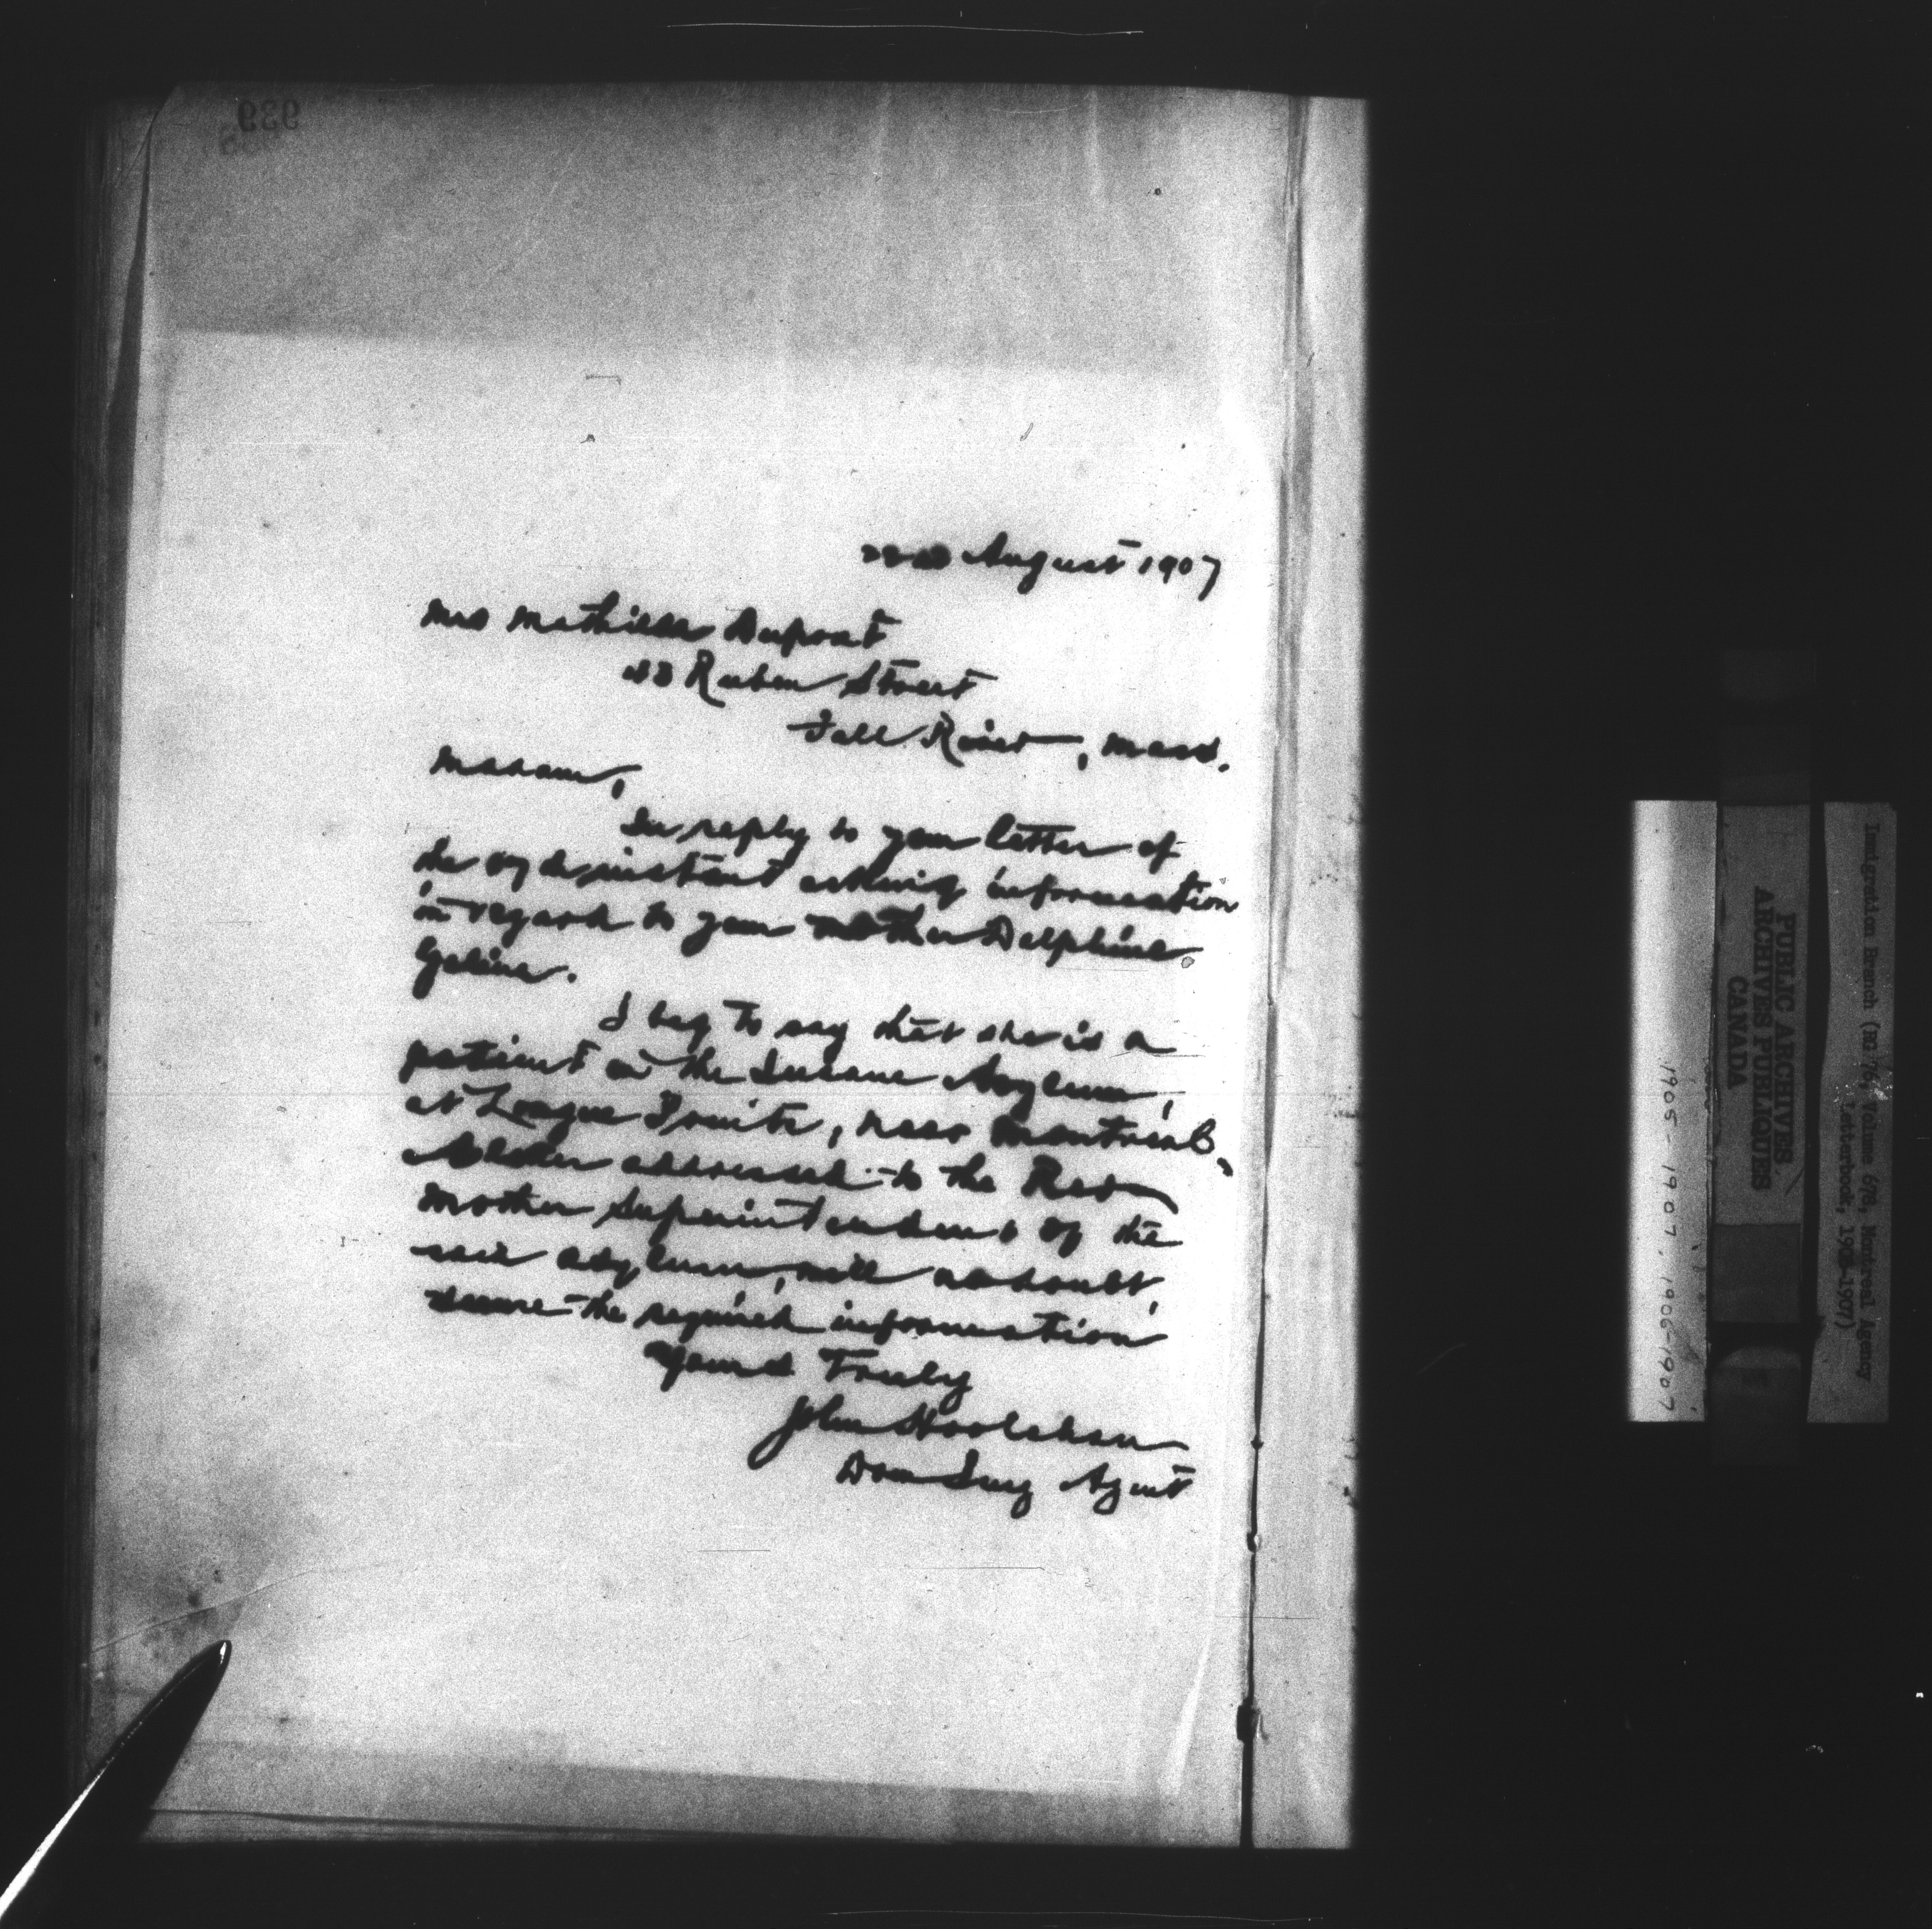 939
22nd August 1907
Mrs Mathilda Dupont
Ruben Street
Fall River, Mass.
Madam,
In reply to your letter of
the instant asking information
in regard to your mother Delphine
Gelina.
I beg to say that she is a
patient in the Insane Asylum,
at Longue Pointe, near Montreal.
A letter addressed to the Rev
Mother Superintendent of the
said asylum, will no doubt,
secure the required information
Yours Truly
John Hoolahan
Dom Img Agent
PUBLIC ARCHIVES
ARCHIVES PUBLIQUES
CANADA
Immigration Branch (RG 76, Volume 678, Montreal Agency
Letterbook, 1905-1907)
1905-1907, 1906-1907